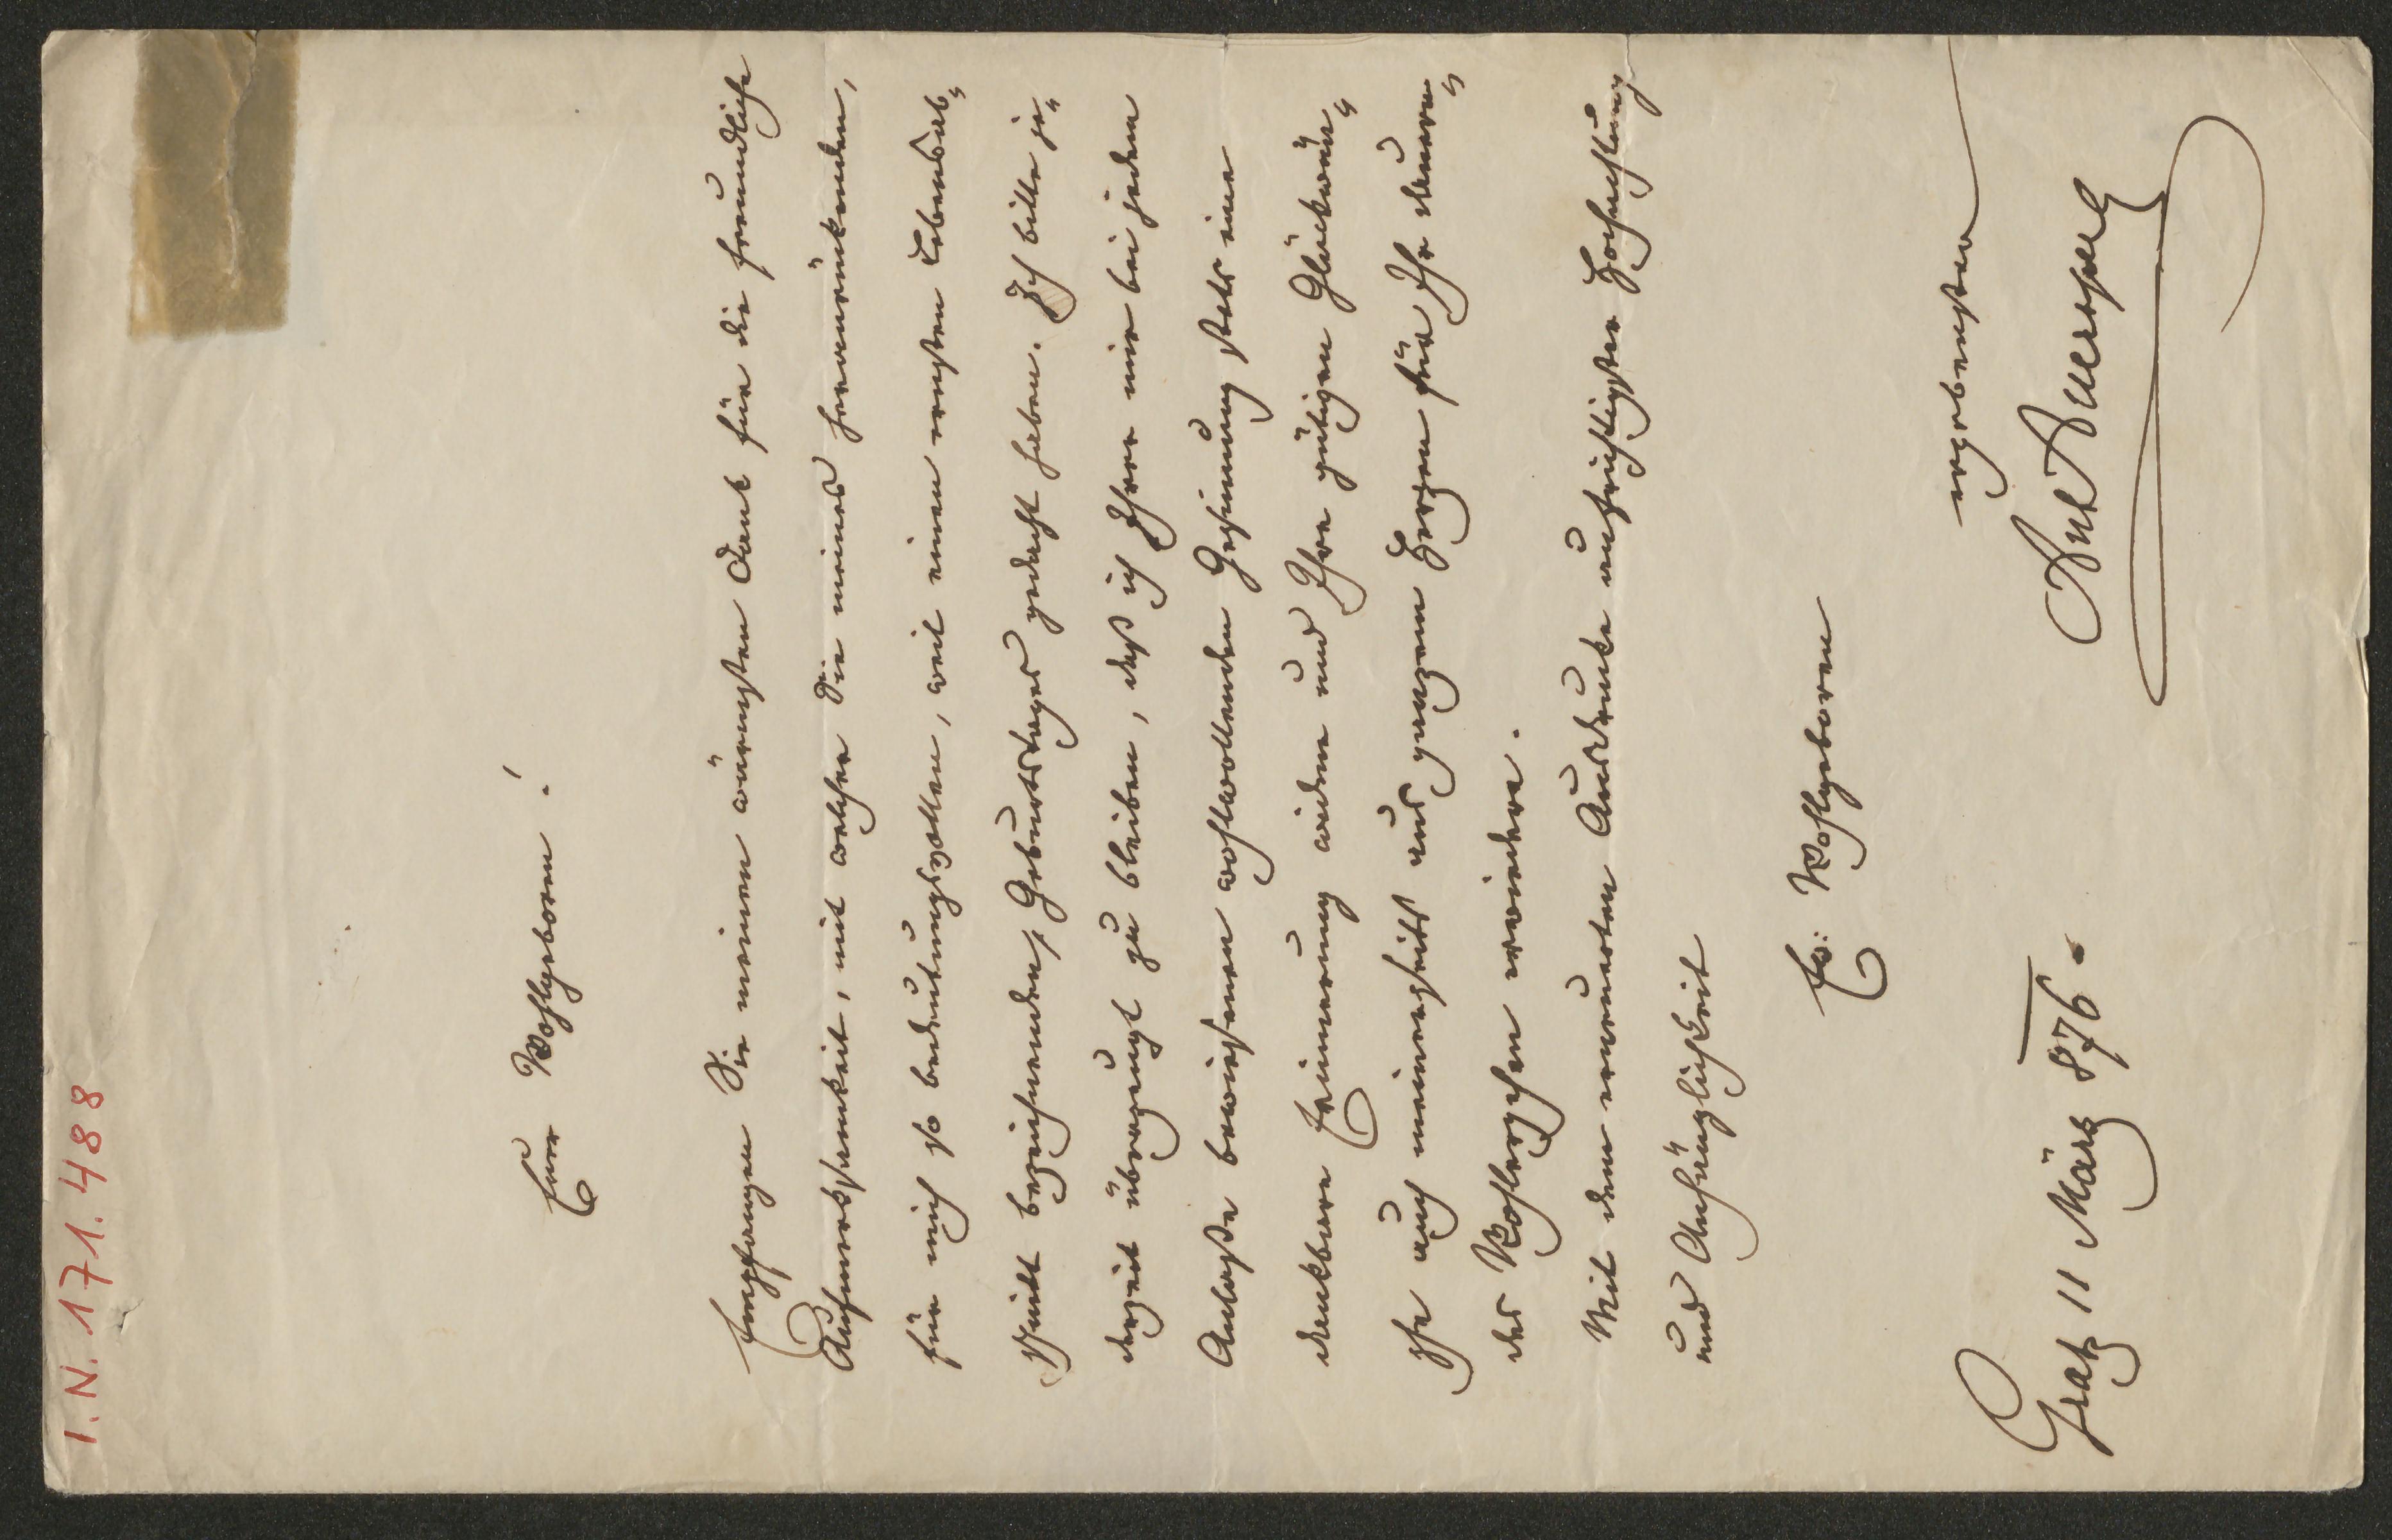 I.N. 171.488
Euer Wohlgeboren!
Empfangen Sie meinen wärmsten Dank für die freundliche
Aufmerksamkeit, mit welcher Sie meines herannückenden,
für mich so bedeutungsvollen, weil einen ernsten Lebensab„
schnitt bezeichnenden, Geburtstages gedacht haben. Ich bitte je„
derzeit überzeugt zu bleiben, daß ich Ihrer mir bei jedem
Anlaße bewiesenen wohlwollenden Gesinnung stets eine
dankbare Erinnerung widme und Ihre gütigen Glückwün„
sche auch meinerseits aus ganzem Herzen für Ihr dauern„
des Wohlergehen erwiedere.
Mit dem erneuerten Ausdrucke aufrichtigster Hochachtung
und Anhänglichkeit
Ew: Wohlgeboren
ergebenster
Ant Auersperg
Gratz 11 März 876.